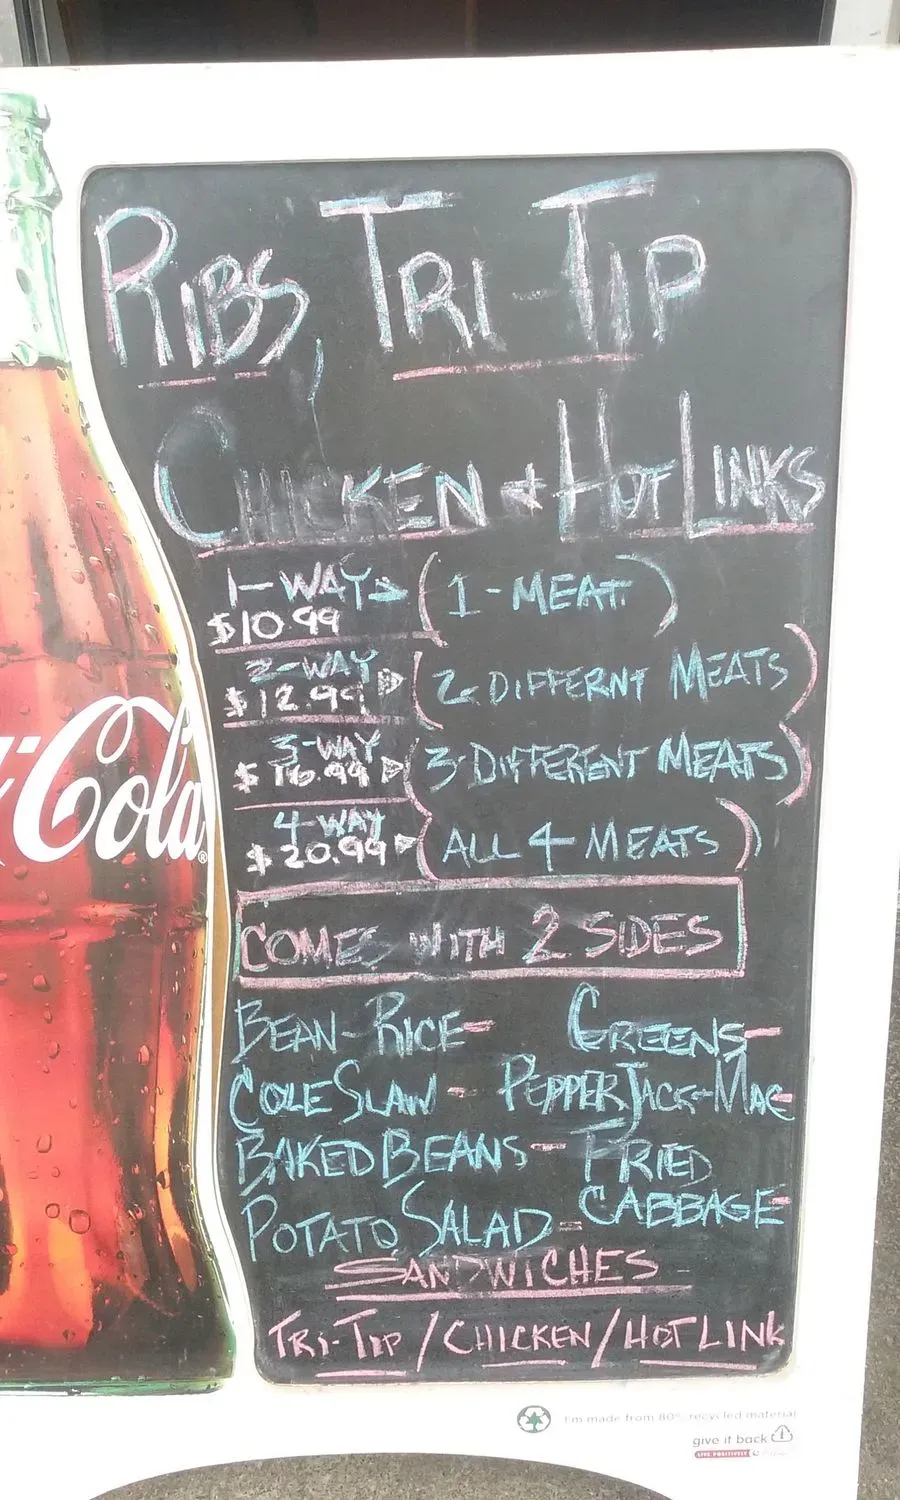 RIBS, TRI-TIP
CHICKEN & HOT LINKS
1-WAY (1-MEAT)
$10.99
2-WAY (2 DIFFERNT MEATS)
$12.99
3-WAY (3 DIFFERENT MEATS)
$16.99
4-WAY (ALL 4 MEATS)
$20.99
COMES WITH 2 SIDES
BEAN-RICE- GREENS-
COLE SLAW - PEPPERJACK-MAC-
BAKED BEANS - FRIED
CABBAGE-
POTATO SALAD -
SANDWICHES
TRI-TIP / CHICKEN / HOT LINK
Cola®
I'm made from 80% recycled material
give it back
LIVE POSITIVELY